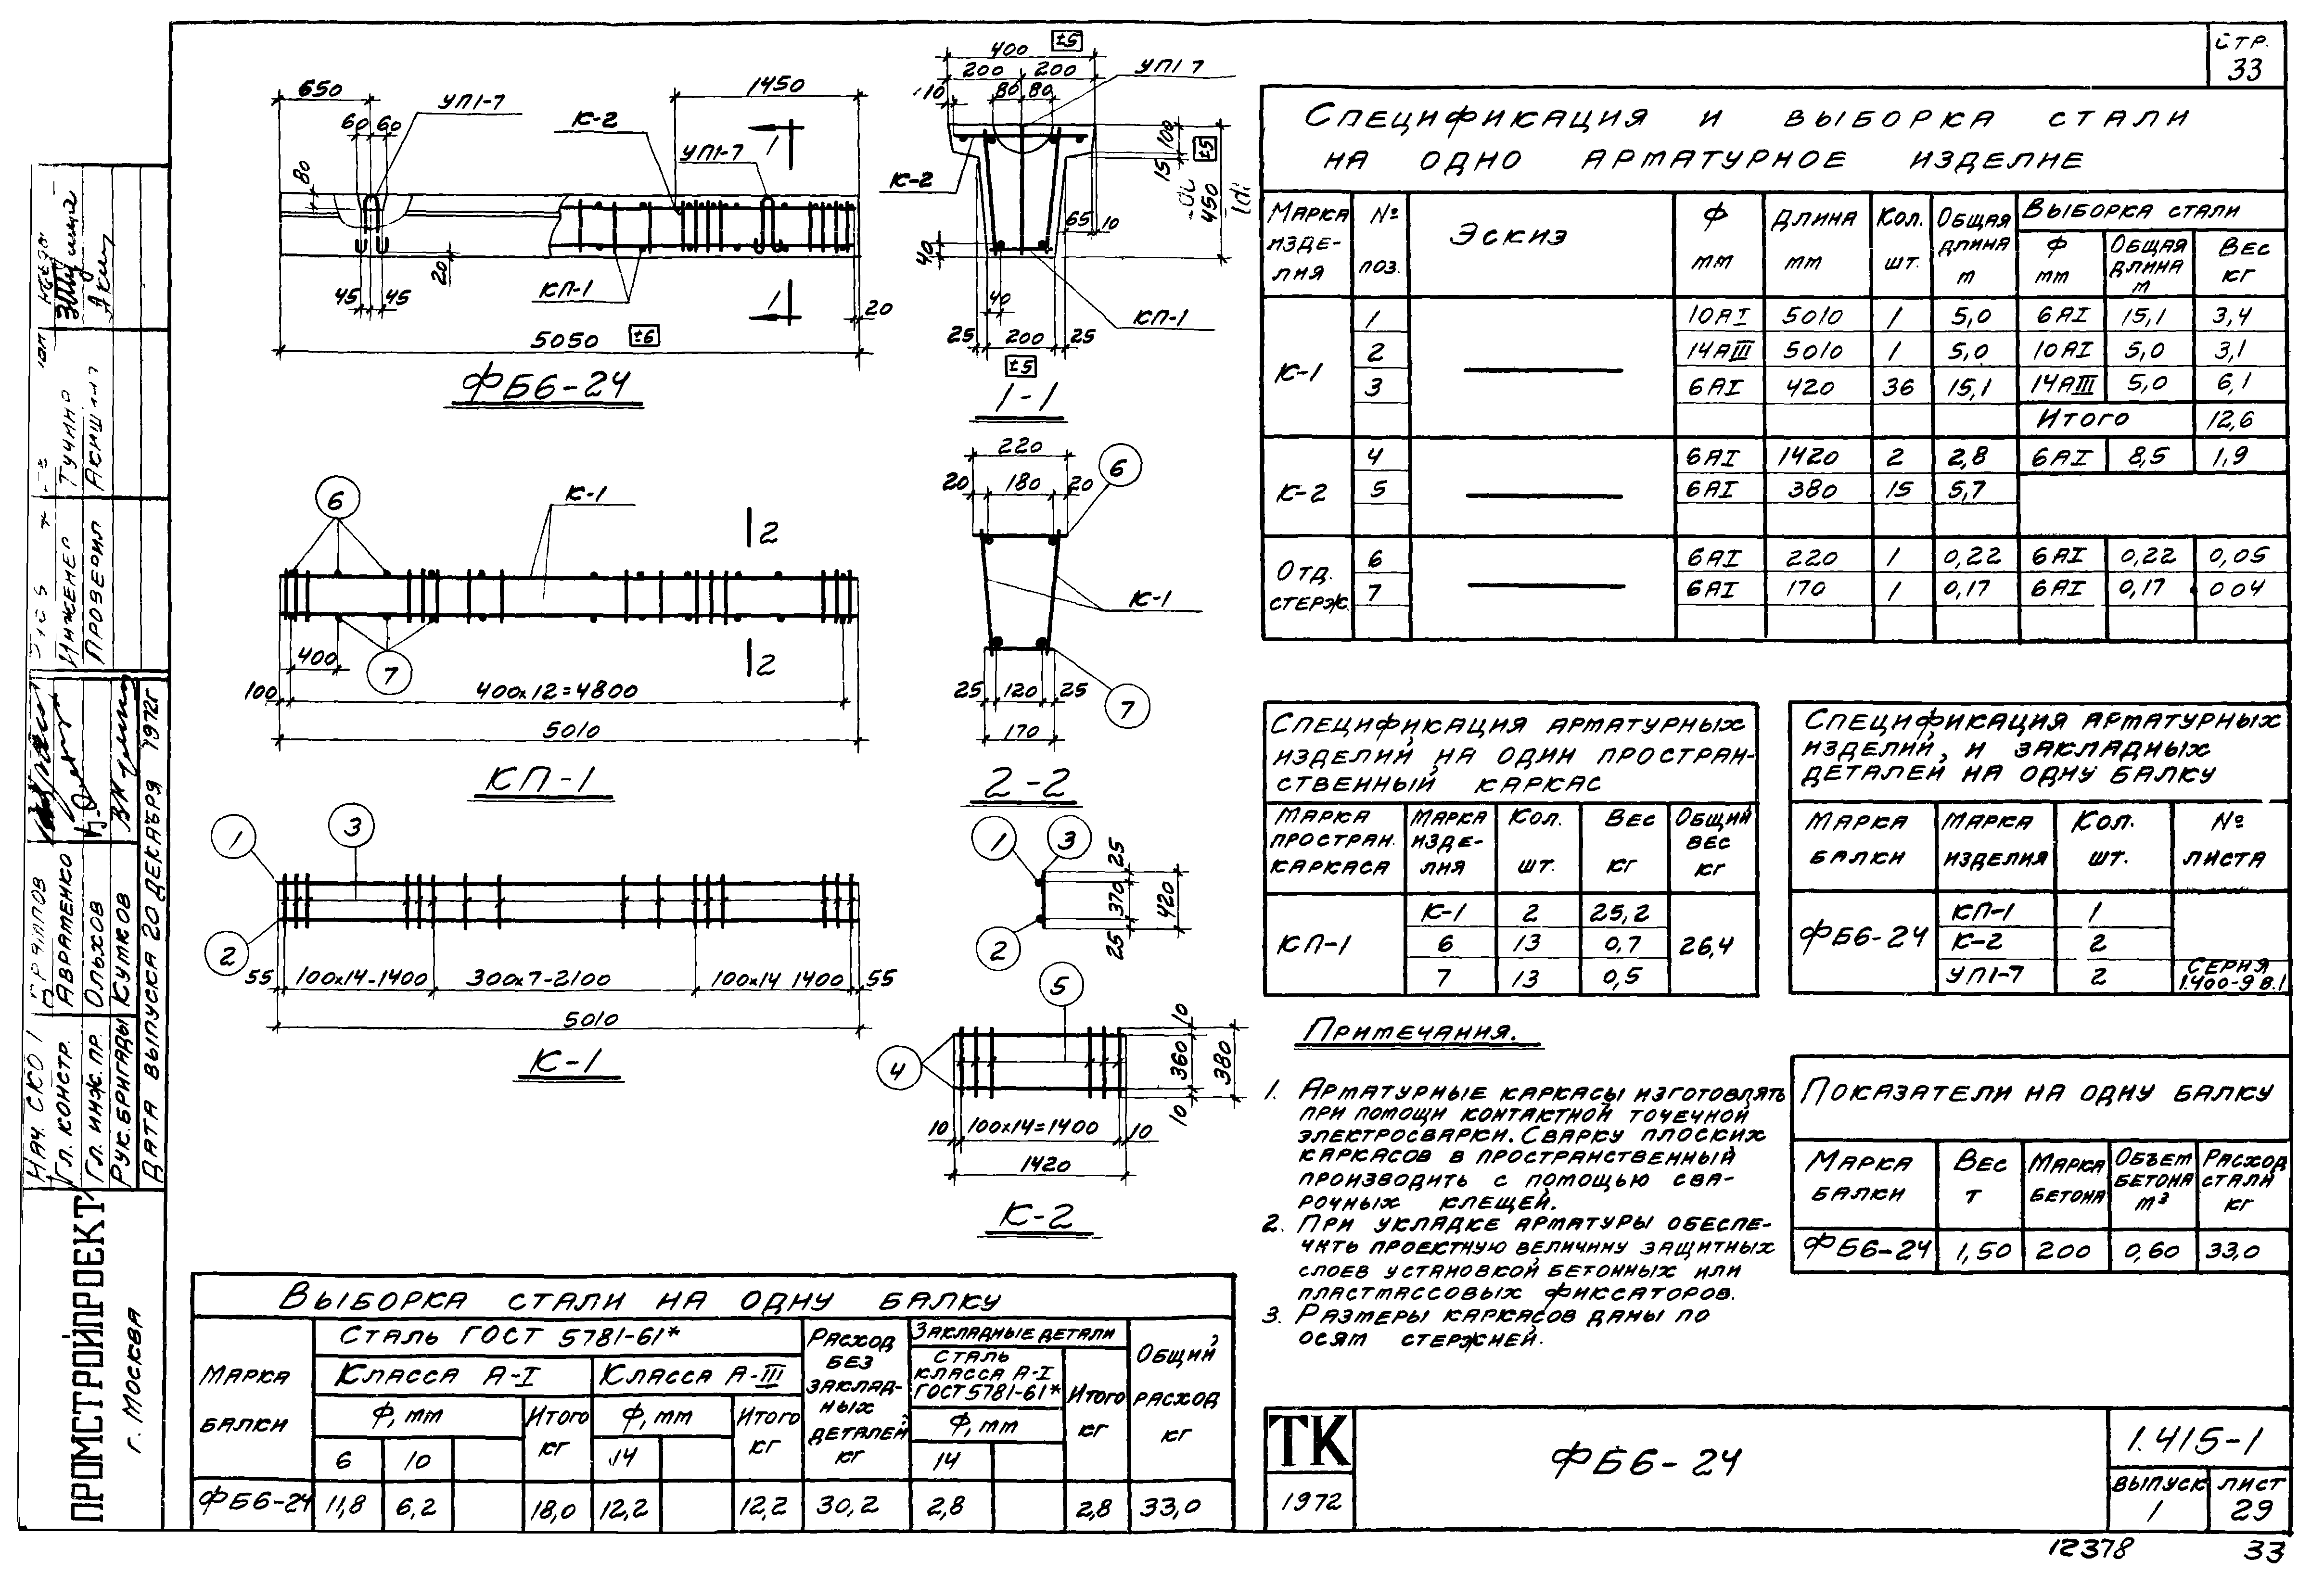 СТР.
33
650
60 60
УП1-7
80
К-2
1450
УП1-7
1
КП-1
45 45
20
1
20
5050 ±6
ФБ6-24
400 ±5
200 200
УП1 7
80 80
100
15
±5
К-2
450
65 10
40
40
КП-1
25 200 25
±5
1-1
6
К-1
2
400
7
2
100 400х12=4800
5010
КП-1
220
20 180 20
6
К-1
25 120 25
7
170
2-2
1
3
2
55 100х14-1400 300х7-2100 100х14 1400 55
5010
К-1
1
3
25
370
420
2
25
5
10
4
360
380
10
10 100х14=1400 10
1420
К-2
СПЕЦИФИКАЦИЯ И ВЫБОРКА СТАЛИ
НА ОДНО АРМАТУРНОЕ ИЗДЕЛИЕ
МАРКА ИЗДЕ-ЛИЯ № ПОЗ. ЭСКИЗ Ф мм ДЛИНА мм КОЛ. ШТ. ОБЩАЯ ДЛИНА м ВЫБОРКА СТАЛИ
Ф мм ОБЩАЯ ДЛИНА м ВЕС КГ
К-1
1 10АI 5010 1 5,0 6АI 15,1 3,4
2 14АIII 5010 1 5,0 10АI 5,0 3,1
3 6АI 420 36 15,1 14АIII 5,0 6,1
ИТОГО 12,6
К-2
4 6АI 1420 2 2,8 6АI 8,5 1,9
5 6АI 380 15 5,7
ОТД. СТЕРЖ.
6 6АI 220 1 0,22 6АI 0,22 0,05
7 6АI 170 1 0,17 6АI 0,17 0 04
СПЕЦИФИКАЦИЯ АРМАТУРНЫХ
ИЗДЕЛИЙ НА ОДИН ПРОСТРАН-
СТВЕННЫЙ КАРКАС
МАРКА ПРОСТРАН. КАРКАСА МАРКА ИЗДЕ-ЛИЯ КОЛ. ШТ. ВЕС КГ ОБЩИЙ ВЕС КГ
КП-1
К-1 2 25,2
6 13 0,7 26,4
7 13 0,5
СПЕЦИФИКАЦИЯ АРМАТУРНЫХ
ИЗДЕЛИЙ, И ЗАКЛАДНЫХ
ДЕТАЛЕЙ НА ОДНУ БАЛКУ
МАРКА БАЛКИ МАРКА ИЗДЕЛИЯ КОЛ. ШТ. № ЛИСТА
ФБ6-24
КП-1 1
К-2 2
УП1-7 2 СЕРИЯ 1.400-9 В.1
ПРИМЕЧАНИЯ.
1. АРМАТУРНЫЕ КАРКАСЫ ИЗГОТОВЛЯТЬ
ПРИ ПОМОЩИ КОНТАКТНОЙ ТОЧЕЧНОЙ
ЭЛЕКТРОСВАРКИ. СВАРКУ ПЛОСКИХ
КАРКАСОВ В ПРОСТРАНСТВЕННЫЙ
ПРОИЗВОДИТЬ С ПОМОЩЬЮ СВА-
РОЧНЫХ КЛЕЩЕЙ.
2. ПРИ УКЛАДКЕ АРМАТУРЫ ОБЕСПЕ-
ЧИТЬ ПРОЕКТНУЮ ВЕЛИЧИНУ ЗАЩИТНЫХ
СЛОЕВ УСТАНОВКОЙ БЕТОННЫХ ИЛИ
ПЛАСТМАССОВЫХ ФИКСАТОРОВ.
3. РАЗМЕРЫ КАРКАСОВ ДАНЫ ПО
ОСЯМ СТЕРЖНЕЙ.
ПОКАЗАТЕЛИ НА ОДНУ БАЛКУ
МАРКА БАЛКИ ВЕС Т МАРКА БЕТОНА ОБЪЕМ БЕТОНА м³ РАСХОД СТАЛИ КГ
ФБ6-24 1,50 200 0,60 33,0
ВЫБОРКА СТАЛИ НА ОДНУ БАЛКУ
МАРКА БАЛКИ СТАЛЬ ГОСТ 5781-61* РАСХОД БЕЗ ЗАКЛАД-НЫХ ДЕТАЛЕЙ КГ ЗАКЛАДНЫЕ ДЕТАЛИ ОБЩИЙ РАСХОД КГ
КЛАССА А-I КЛАССА А-III СТАЛЬ КЛАССА А-I ГОСТ 5781-61* ИТОГО КГ
Ф, мм ИТОГО КГ Ф, мм ИТОГО КГ Ф, мм
6 10 14 14
ФБ6-24 11,8 6,2 18,0 12,2 12,2 30,2 2,8 2,8 33,0
ТК
1972
ФБ6-24
1.415-1
ВЫПУСК 1
ЛИСТ 29
12378 33
ПРОМСТРОЙПРОЕКТ
г. МОСКВА
НАЧ. СКО 1
ГЛ. КОНСТР. АВРАМЕНКО
ГЛ. ИНЖ. ПР. ОЛЬХОВ
РУК. БРИГАДЫ КУТКОВ
ДАТА ВЫПУСКА 20 ДЕКАБРЯ 1972г
ИНЖЕНЕР ТУЧИНА
ПРОВЕРИЛ